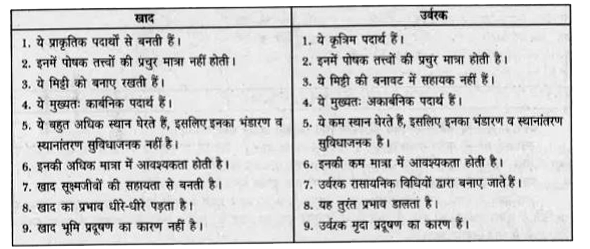 खाद
उर्वरक
1. ये प्राकृतिक पदार्थों से बनती हैं।
2. इनमें पोषक तत्त्वों की प्रचुर मात्रा नहीं होती।
3. ये मिट्टी को बनाए रखती हैं।
4. ये मुख्यतः कार्बनिक पदार्थ हैं।
5. ये बहुत अधिक स्थान घेरते हैं, इसलिए इनका भंडारण व
स्थानांतरण सुविधाजनक नहीं है।
6. इनकी अधिक मात्रा में आवश्यकता होती है।
7. खाद सूक्ष्मजीवों की सहायता से बनती है।
8. खाद का प्रभाव धीरे-धीरे पड़ता है।
9. खाद भूमि प्रदूषण का कारण नहीं है।
1. ये कृत्रिम पदार्थ हैं।
2. इनमें पोषक तत्त्वों की प्रचुर मात्रा होती है।
3. ये मिट्टी की बनावट में सहायक नहीं हैं।
4. ये मुख्यतः अकार्बनिक पदार्थ हैं।
5. ये कम स्थान घेरते हैं, इसलिए इनका भंडारण व स्थानांतरण
सुविधाजनक है।
6. इनकी कम मात्रा में आवश्यकता होती है।
7. उर्वरक रासायनिक विधियों द्वारा बनाए जाते हैं।
8. यह तुरंत प्रभाव डालता है।
9. उर्वरक मृदा प्रदूषण का कारण हैं।